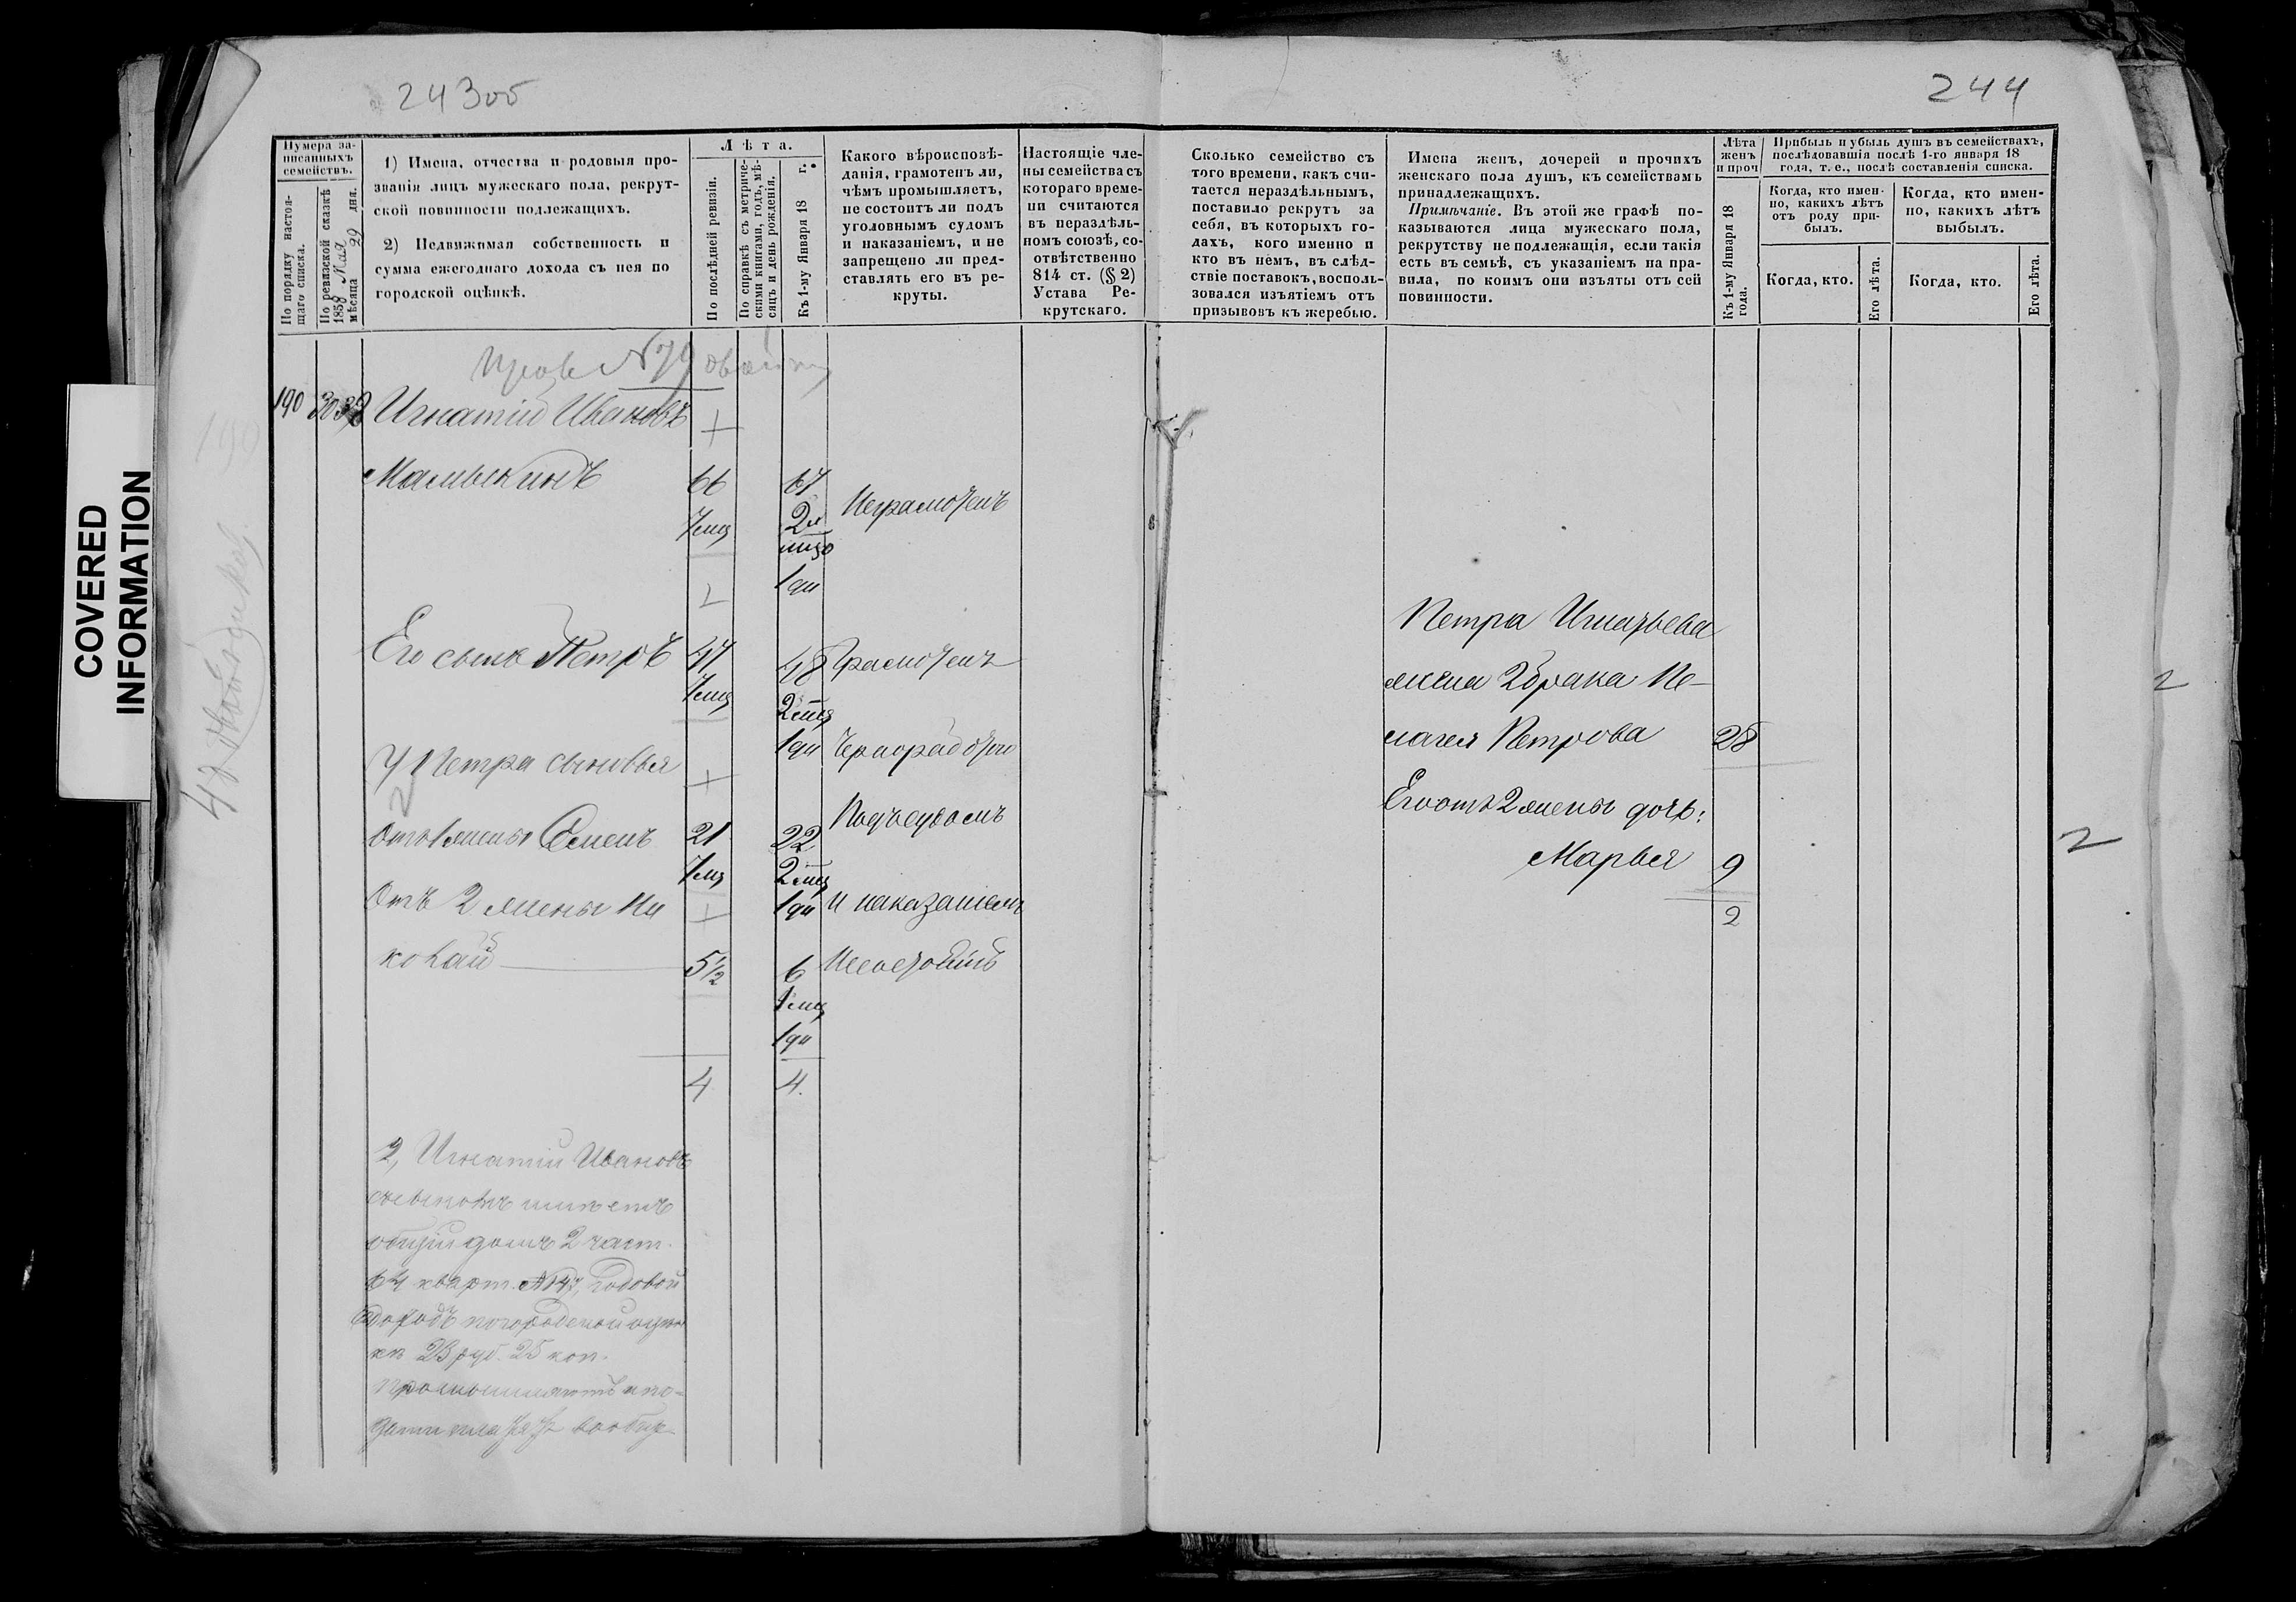 243об
244
COVERED
INFORMATION
Нумера записанныхъ семействъ.
По порядку настоящаго списка.
По ревизской сказкѣ 1858 Мая мѣсяца 29 дня.
1) Имена, отчества и родовыя прозванія лицъ мужескаго пола, рекрутской повинности подлежащихъ.
2) Недвижимая собственность и сумма ежегоднаго дохода съ нея по городской оцѣнкѣ.
Лѣта.
По послѣдней ревизіи.
По справкѣ съ метрическими книгами, годъ, мѣсяцъ и день рожденія.
Къ 1-му Января 18 г.
Какого вѣроисповѣданія, грамотенъ ли, чѣмъ промышляетъ, не состоитъ ли подъ уголовнымъ судомъ и наказаніемъ, и не запрещено ли представлять его въ рекруты.
Настоящіе члены семейства съ котораго времени считаются въ нераздѣльномъ союзѣ, соотвѣтственно 814 ст. (§ 2) Устава Рекрутскаго.
Сколько семейство съ того времени, какъ считается нераздѣльнымъ, поставило рекрутъ за себя, въ которыхъ годахъ, кого именно и кто въ нёмъ, въ слѣдствіе поставокъ, воспользовался изъятіемъ отъ призывовъ къ жеребью.
Имена женъ, дочерей и прочихъ женскаго пола душъ, къ семействамъ принадлежащихъ.
Примѣчаніе. Въ этой же графѣ показываются лица мужескаго пола, рекрутству не подлежащія, если такія есть въ семьѣ, съ указаніемъ на правила, по коимъ они изъяты отъ сей повинности.
Лѣта женъ и проч
Къ 1-му Января 18 года.
Прибыль и убыль душъ въ семействахъ, послѣдовавшія послѣ 1-го января 18 года, т. е., послѣ составленія списка.
Когда, кто именно, какихъ лѣтъ отъ роду прибылъ.
Когда, кто именно, какихъ лѣтъ выбылъ.
Когда, кто.
Его лѣта.
Когда, кто.
Его лѣта.
№79
190
Игнатій Ивановъ
Малькинъ 66 67 Неграмотенъ
Его сынъ Петръ 47 48 Грамотенъ
У Петра сыновья
Чернорабочіе
отъ 1 жены Семенъ 21 22 Подъ судомъ
Отъ 2 жены Ни
и наказаніемъ
колай 5½ 6 Несостоятъ
4 4.
2, Игнатій Ивановъ
съ сыномъ имѣетъ
общій домъ 2 част.
64 кварт. №147, годовой
доходъ по городской оцѣн
кѣ 23 руб. 25 коп.
Петра Игнатьева
жена 2 брака Пе-
лагея Петрова 28
Его отъ 2 жены дочь:
Марья 9
2
2
2